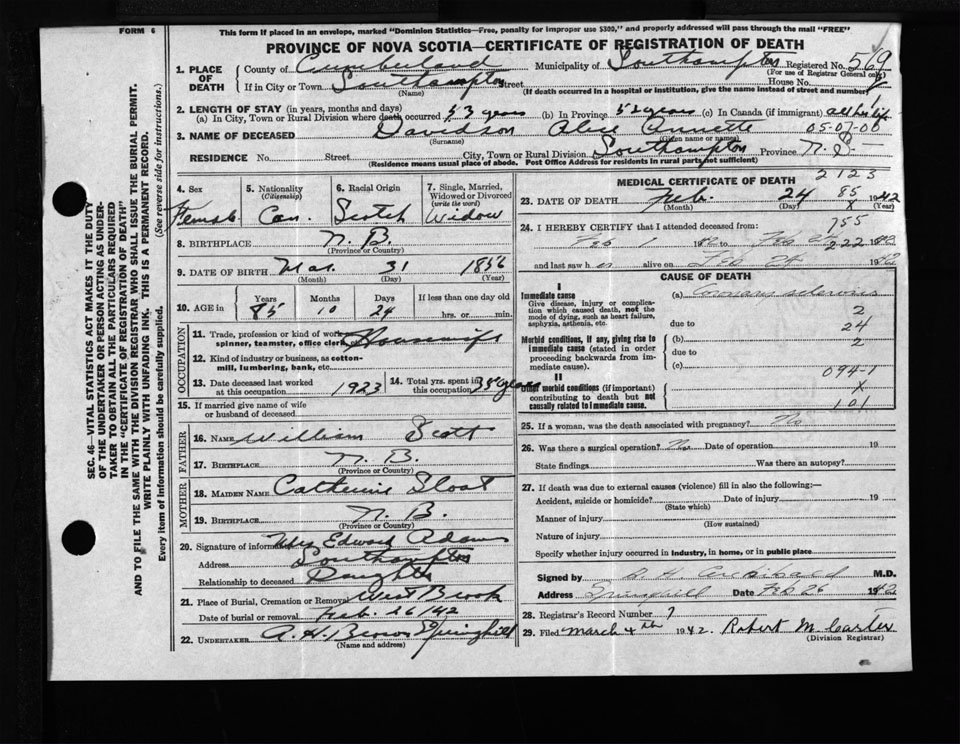 FORM 6
This form if placed in an envelope, marked "Dominion Statistics—Free, penalty for improper use $300," and properly addressed will pass through the mail "FREE"
PROVINCE OF NOVA SCOTIA—CERTIFICATE OF REGISTRATION OF DEATH
1. PLACE OF DEATH
County of Cumberland Municipality of Southampton Registered No. 569
(For use of Registrar General only)
If in City or Town Southampton Street House No.
(Name) (If death occurred in a hospital or institution, give the name instead of street and number)
2. LENGTH OF STAY (in years, months and days)
(a) In City, Town or Rural Division where death occurred 53 years (b) In Province 52 years (c) In Canada (if immigrant) all her life
3. NAME OF DECEASED Davidson Alice Annette 05-07-00
(Surname) (Given name or names)
RESIDENCE No. Street City, Town or Rural Division Southampton Province N.S.
(Residence means usual place of abode. Post Office Address for residents in rural parts not sufficient)
4. Sex Female
5. Nationality (Citizenship) Can.
6. Racial Origin Scotch
7. Single, Married, Widowed or Divorced (write the word) Widow
8. BIRTHPLACE N. B.
(Province or Country)
9. DATE OF BIRTH Mar. 31 1856
(Month) (Day) (Year)
10. AGE in Years 85 Months 10 Days 24 If less than one day old
hrs. or min.
OCCUPATION
11. Trade, profession or kind of work as spinner, teamster, office clerk, Housewife
12. Kind of industry or business, as cotton-mill, lumbering, bank, etc.
13. Date deceased last worked at this occupation 1923
14. Total yrs. spent in this occupation 38 years
15. If married give name of wife or husband of deceased
FATHER
16. NAME William Scott
17. BIRTHPLACE N. B.
(Province or Country)
MOTHER
18. MAIDEN NAME Catherine Sloat
19. BIRTHPLACE N. B.
(Province or Country)
20. Signature of informant Mrs Edward Adams
Address Southampton
Relationship to deceased Daughter
21. Place of Burial, Cremation or Removal West Brook
Date of burial or removal Feb. 26/42
22. UNDERTAKER A. H. Brown Springhill
(Name and address)
2123
MEDICAL CERTIFICATE OF DEATH
85
23. DATE OF DEATH Feb. 24 X 1942
(Month) (Day) (Year)
24. I HEREBY CERTIFY that I attended deceased from: 755
Feb 1 1942 to Feb 222 1942
and last saw her alive on Feb 24 1942
CAUSE OF DEATH
I
Immediate cause
Give disease, injury or complication which caused death, not the mode of dying, such as heart failure, asphyxia, asthenia, etc.
(a) Coronary sclerosis
2
due to 24
Morbid conditions, if any, giving rise to immediate cause (stated in order proceeding backwards from immediate cause).
(b) 2
due to
(c) 094-1
II
Other morbid conditions (if important) contributing to death but not causally related to immediate cause.
X
101
25. If a woman, was the death associated with pregnancy? No
26. Was there a surgical operation? No Date of operation 19
State findings Was there an autopsy?
27. If death was due to external causes (violence) fill in also the following:—
Accident, suicide or homicide? Date of injury 19
(State which)
Manner of injury
(How sustained)
Nature of injury
Specify whether injury occurred in industry, in home, or in public place
Signed by A. H. Archibald M.D.
Address Springhill Date Feb 26 1942
28. Registrar's Record Number 7
29. Filed March 4th 1942. Robert M. Carter
(Division Registrar)
SEC. 46—VITAL STATISTICS ACT MAKES IT THE DUTY
OF THE UNDERTAKER OR PERSON ACTING AS UNDER-
TAKER TO OBTAIN ALL THE PARTICULARS REQUIRED
IN THE "CERTIFICATE OF REGISTRATION OF DEATH"
AND TO FILE THE SAME WITH THE DIVISION REGISTRAR WHO SHALL ISSUE THE BURIAL PERMIT.
WRITE PLAINLY WITH UNFADING INK. THIS IS A PERMANENT RECORD.
Every item of information should be carefully supplied. (See reverse side for instructions.)